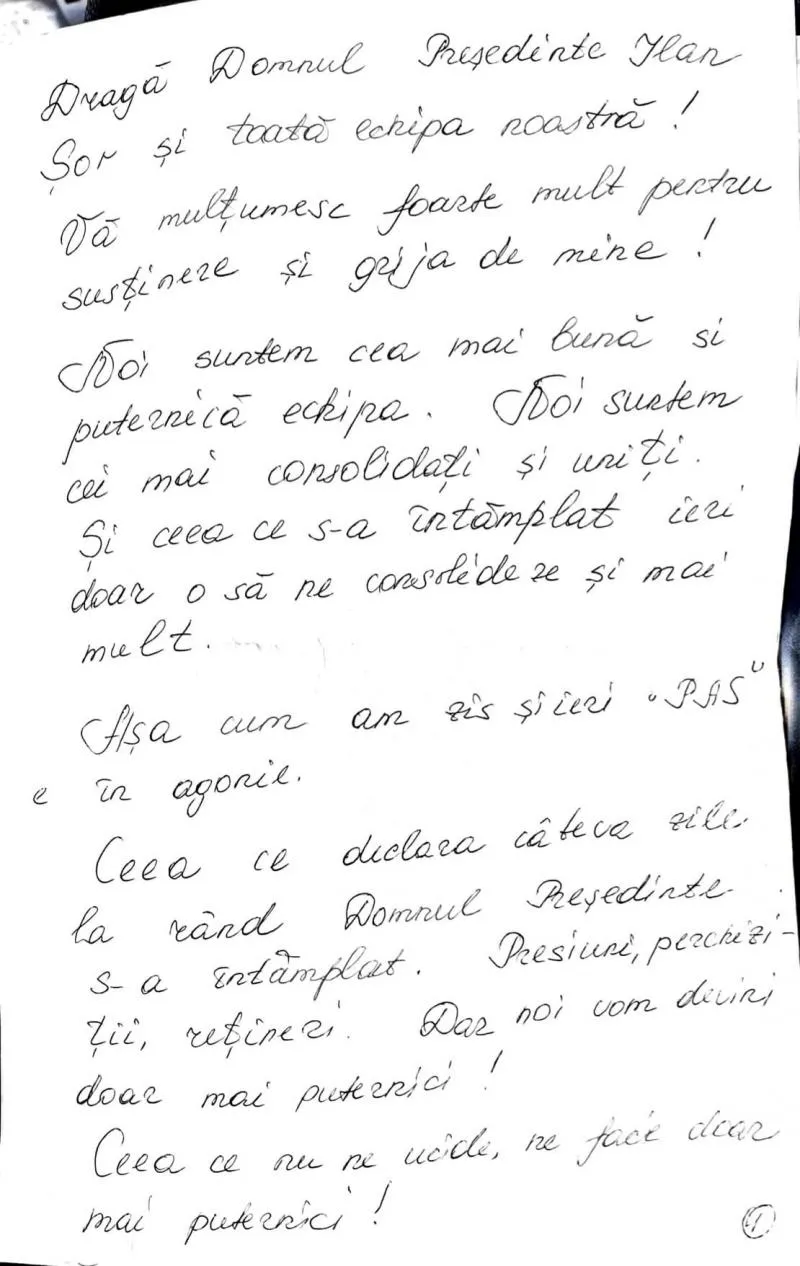 Dragă Domnul Președinte Ilan
Șor și toată echipa noastră!
Vă mulțumesc foarte mult pentru
susținere și grija de mine!
Noi suntem cea mai bună si
puternică echipa. Noi suntem
cei mai consolidați și uniți.
Și ceea ce s-a întâmplat ieri
doar o să ne consolideze și mai
mult.
Așa cum am zis și ieri "PAS"
e în agonie.
Ceea ce declara câteva zile
la rând Domnul Președinte
s-a întâmplat. Presiuni, perchizi-
ții, rețineri. Dar noi vom deveni
doar mai puternici!
Ceea ce nu ne ucide, ne face doar
mai puternici!
1